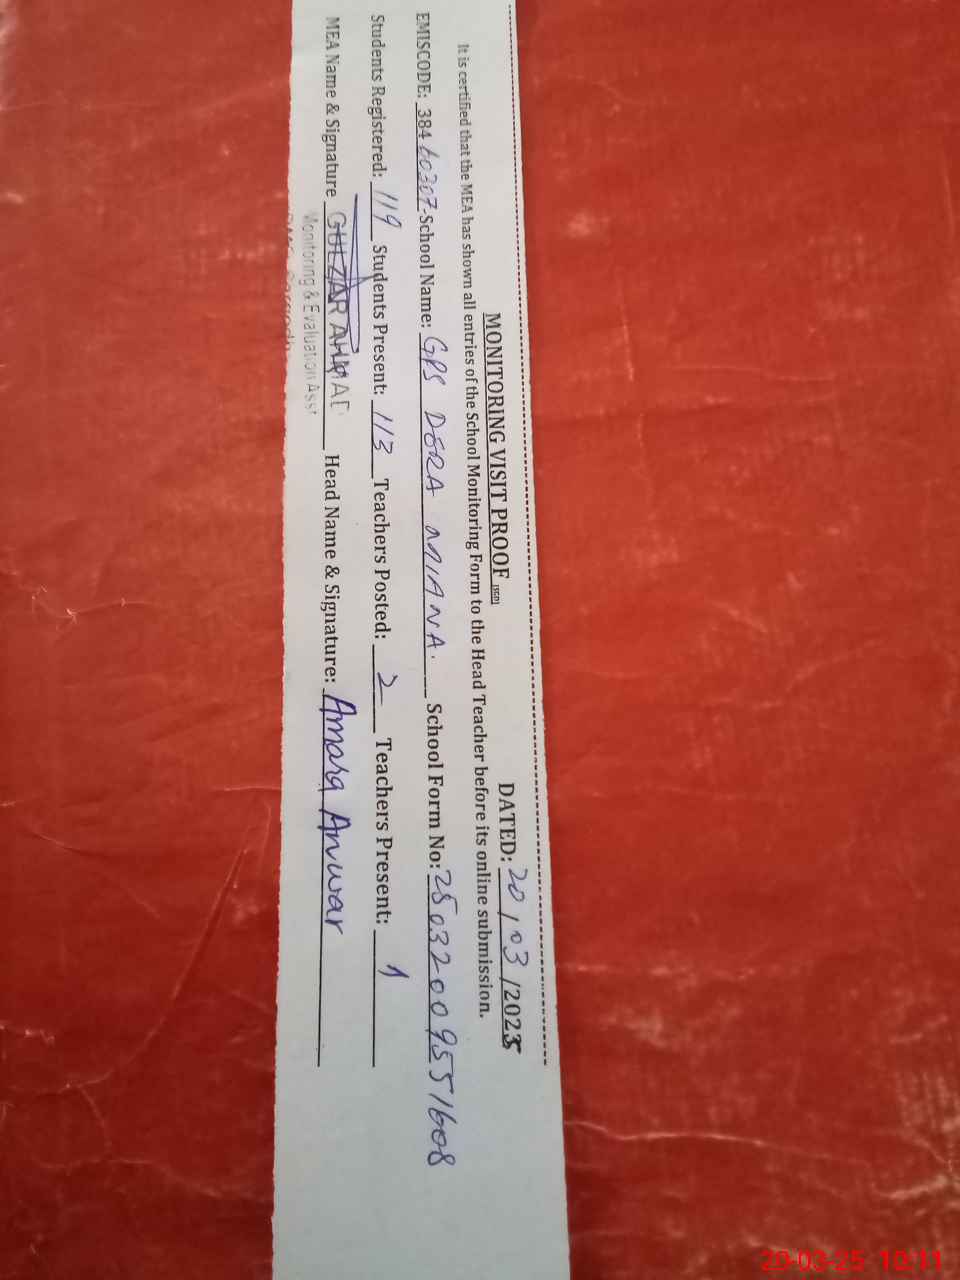 MONITORING VISIT PROOF (SGD) DATED: 20/03/2025
It is certified that the MEA has shown all entries of the School Monitoring Form to the Head Teacher before its online submission.
EMISCODE: 38460307 School Name: GPS DERA MIANA. School Form No: 25032009551608
Students Registered: 119 Students Present: 113 Teachers Posted: 2 Teachers Present: 1
MEA Name & Signature GULZAR AHMAD Head Name & Signature: Amara Anwar
Monitoring & Evaluation Asst
20-03-25 10:11